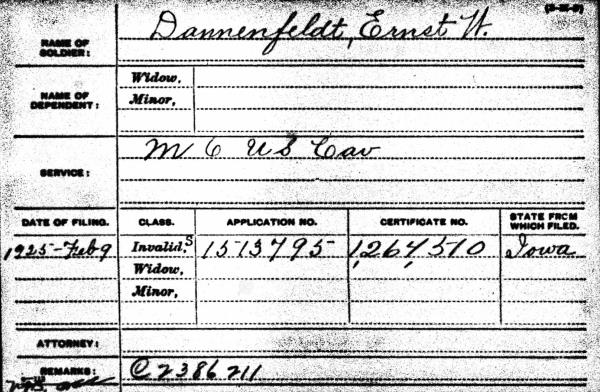 (3-111-9)
NAME OF SOLDIER:
Dannenfeldt, Ernst W.
NAME OF DEPENDENT:
Widow,
Minor,
SERVICE:
M 6 U S Cav
DATE OF FILING. CLASS. APPLICATION NO. CERTIFICATE NO. STATE FROM WHICH FILED.
1925-Feb 9 Invalid, S 1513795 1,264,510 Iowa
Widow,
Minor,
ATTORNEY:
REMARKS: C 2386211